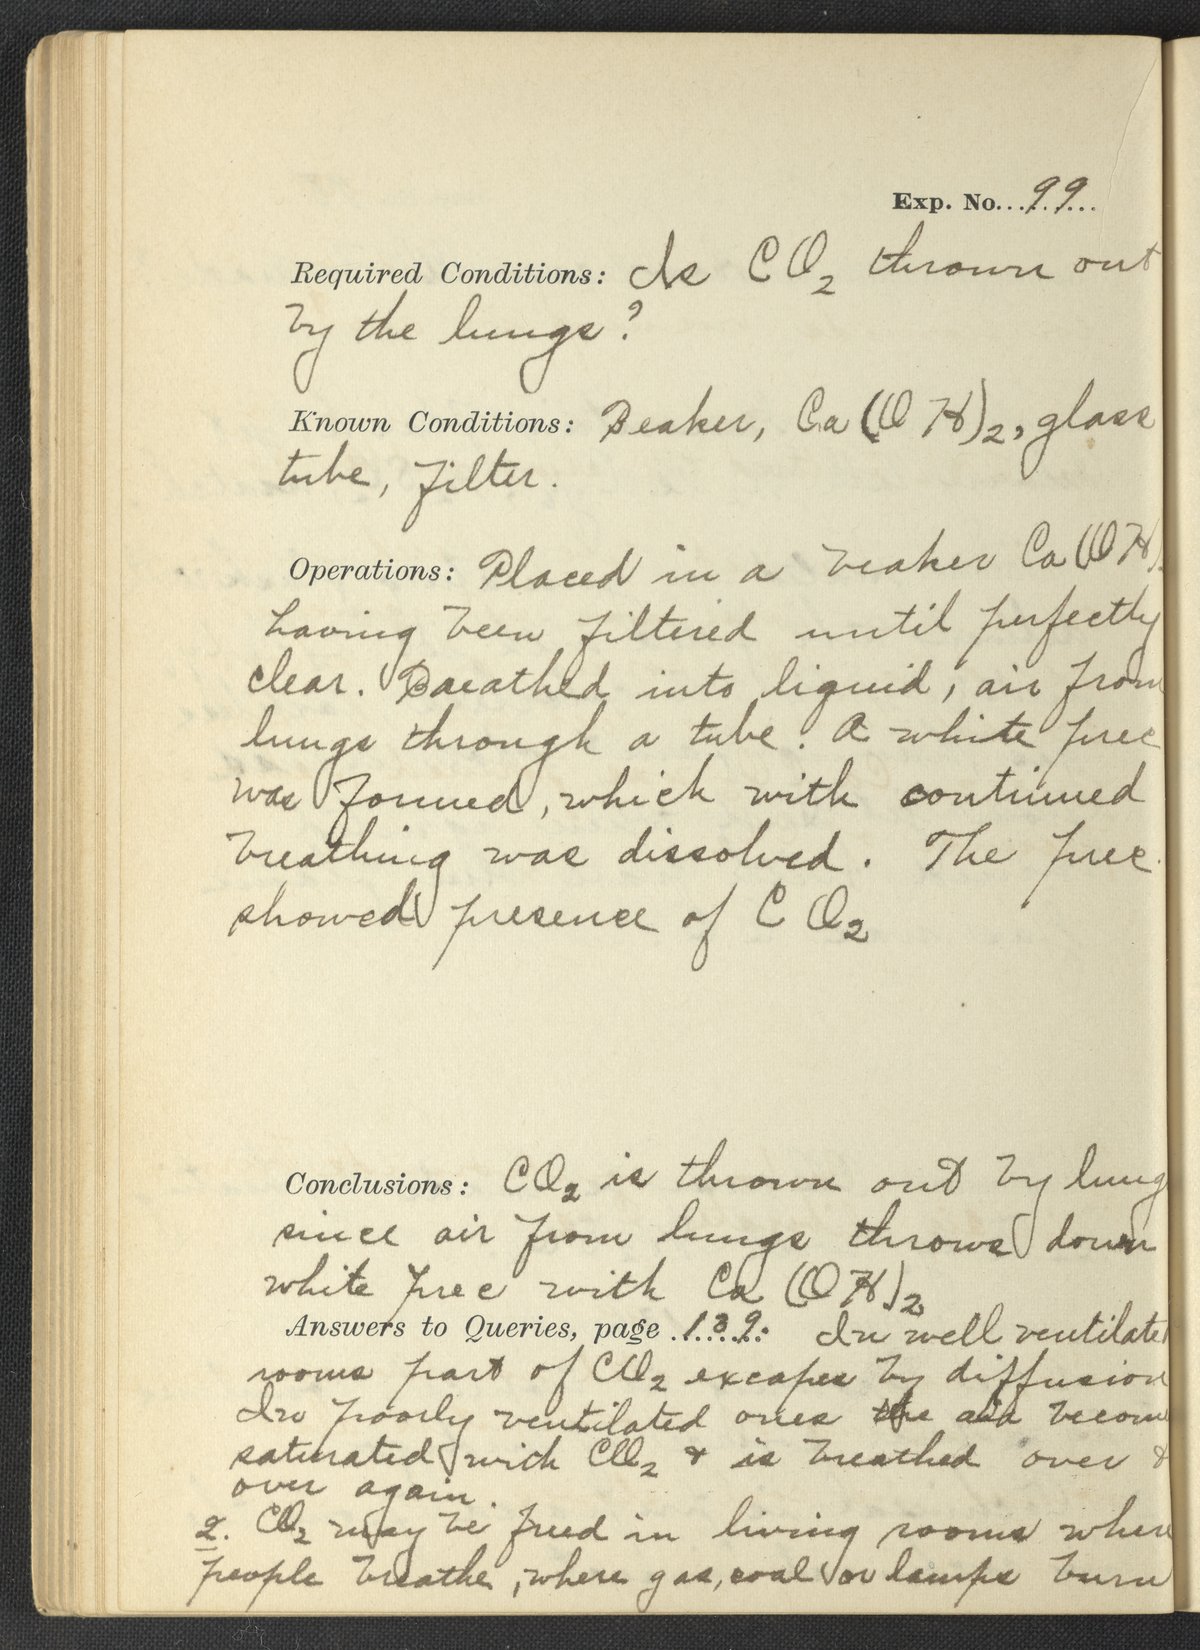 Exp. No. 99
Required Conditions: Is CO2 thrown out
by the lungs?
Known Conditions: Beaker, Ca(OH)2, glass
tube, filter.
Operations: Placed in a beaker Ca(OH)
having been filtered until perfectly
clear. Breathed into liquid, air from
lungs through a tube. A white prec
was formed, which with continued
breathing was dissolved. The prec.
showed presence of CO2
Conclusions: CO2 is thrown out by lung
since air from lungs throws down
white prec with Ca(OH)2
Answers to Queries, page 139. In well ventilated
rooms part of CO2 excapes by diffusion
In poorly ventilated ones the air becom
saturated with CO2 & is breathed over &
over again.
2. CO2 may be freed in living rooms where
people breathe, where gas, coal or lamps burn